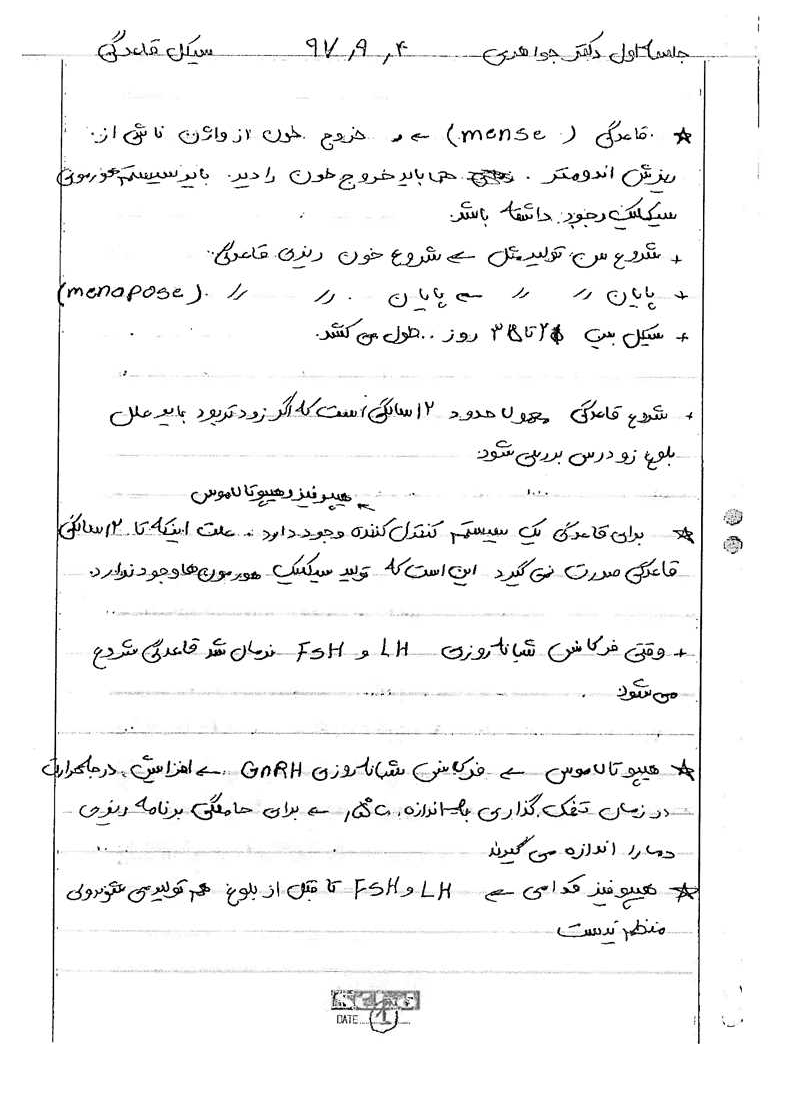 جلسه اول دکتر جواهری ۹۷٫۹٫۴ سیکل قاعدگی
★ قاعدگی (mense) ← خروج خون از واژن ناشی از
ریزش اندومتر . حتما باید خروج خون را دید. باید سیستم هورمونی
سیکلیک وجود داشته باشد.
+ شروع سن تولید مثل ← شروع خون ریزی قاعدگی
+ پایان 〃 〃 ← پایان 〃 〃 (menopose)
+ سیکل بین ۲۱ تا ۳۵ روز طول می کشد.
+ شروع قاعدگی معمولا حدود ۱۲ سالگی است که اگر زودتر بود باید علل
بلوغ زودرس بررسی شود.
هیپوفیز و هیپوتالاموس
★ برای قاعدگی یک سیستم کنترل کننده وجود دارد . علت اینکه تا ۱۲ سالگی
قاعدگی صورت نمی گیرد این است که تولید سیکلیک هورمون ها وجود ندارد.
+ وقتی فرکانس شبانه روزی LH و FSH نرمال شد قاعدگی شروع
می شود .
★ هیپوتالاموس ← فرکانس شبانه روزی GnRH ← افزایش درجه حرارت
در زمان تخمک گذاری به اندازه ← برای حاملگی برنامه ریزی
دما را اندازه می گیرند
★ هیپوفیز قدامی ← LH و FSH تا قبل از بلوغ هم تولید می شوند ولی
منظم نیست
DATE 1